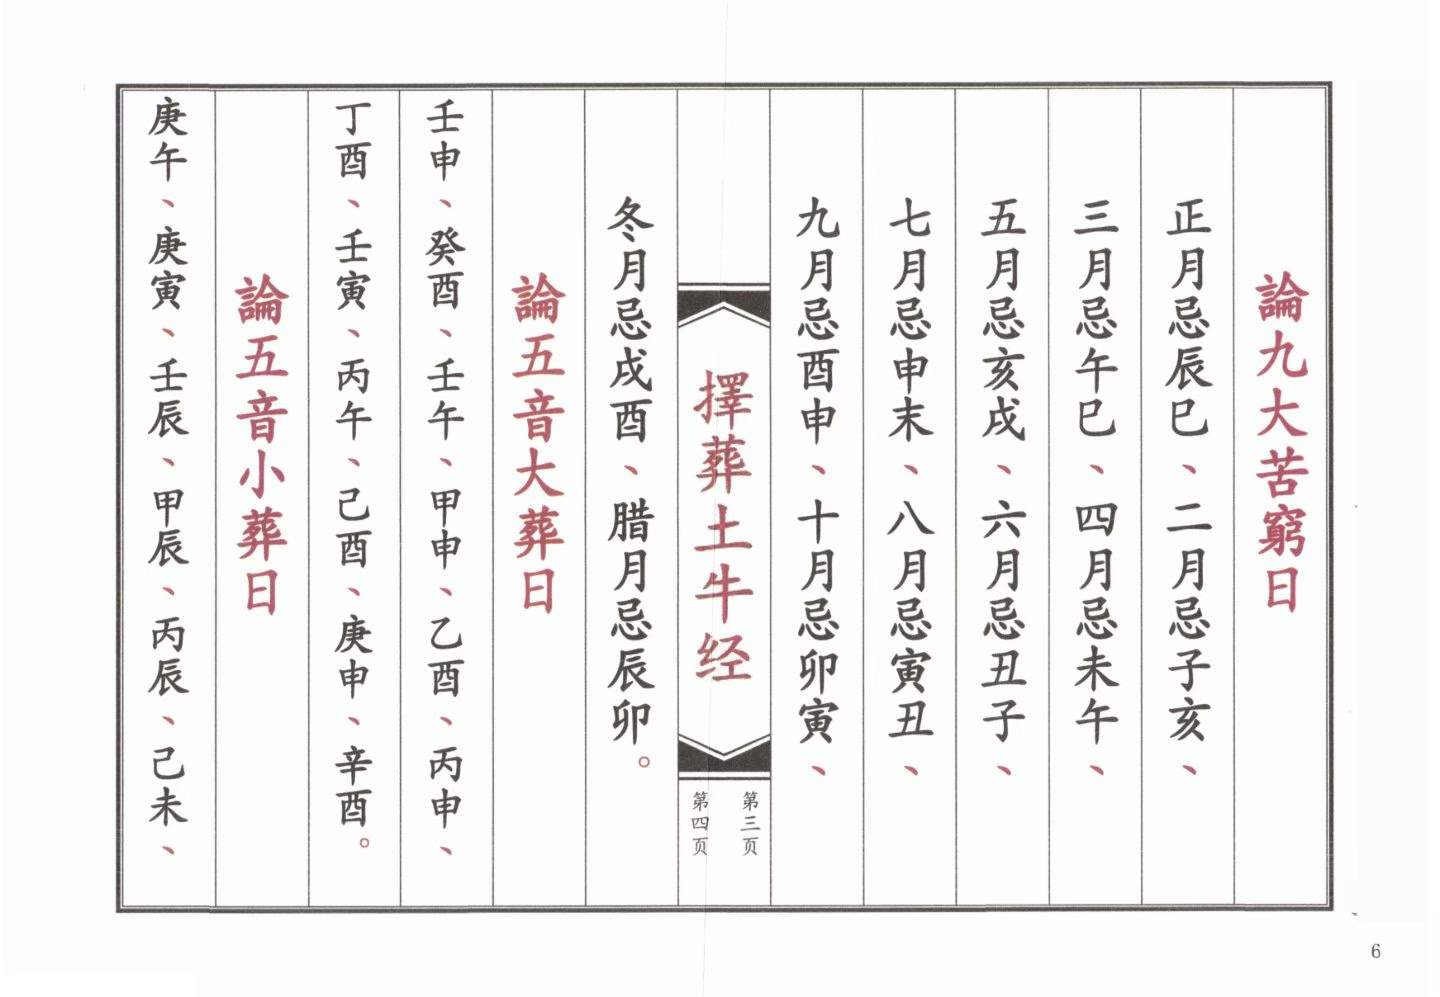 論九大苦窮日
正月忌辰巳、二月忌子亥、
三月忌午巳、四月忌未午、
五月忌亥戌、六月忌丑子、
七月忌申末、八月忌寅丑、
九月忌酉申、十月忌卯寅、
擇葬土牛经
第三页
第四页
冬月忌戌酉、腊月忌辰卯。
論五音大葬日
壬申、癸酉、壬午、甲申、乙酉、丙申、
丁酉、壬寅、丙午、己酉、庚申、辛酉。
論五音小葬日
庚午、庚寅、壬辰、甲辰、丙辰、己未、
6